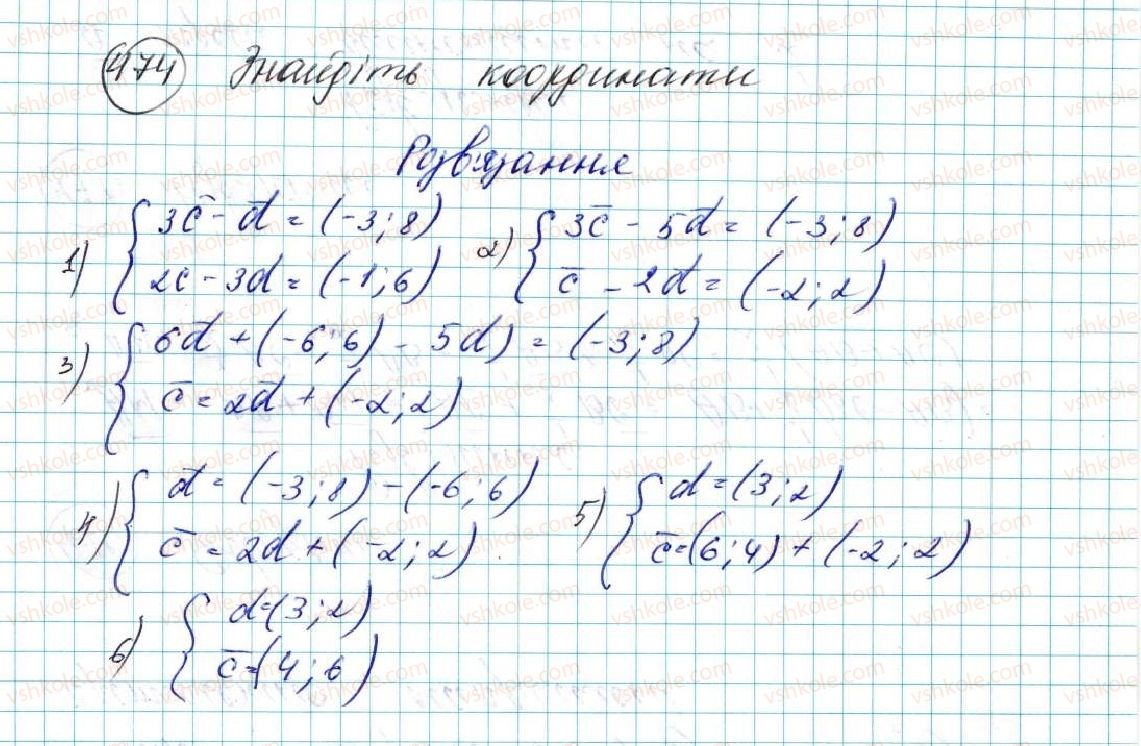 474 Знайдіть координати
Розв'язання
1) { 3c̄ - d̄ = (-3; 8)
2c - 3d = (-1; 6)
2) { 3c̄ - 5d̄ = (-3; 8)
c̄ - 2d̄ = (-2; 2)
3) { 6d̄ + (-6; 6) - 5d) = (-3; 8)
c̄ = 2d̄ + (-2; 2)
4) { d̄ = (-3; 8) - (-6; 6)
c̄ = 2d + (-2; 2)
5) { d = (3; 2)
c̄ = (6; 4) + (-2; 2)
6) { d = (3; 2)
c̄ = (4; 6)
vshkole.com